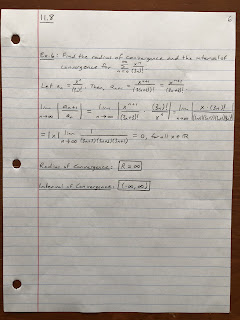 11.8 6
Ex. 6: Find the radius of convergence and the interval of
convergence for ∑_{n=0}^{∞} x^n/(3n)!
Let a_n = x^n/(3n)!. Then, a_{n+1} = x^{n+1}/(3(n+1))! = x^{n+1}/(3n+3)!
lim_{n→∞} |a_{n+1}/a_n| = lim_{n→∞} |x^{n+1}/(3n+3)! · (3n)!/x^n| = lim_{n→∞} |x·(3n)!/(3n+3)(3n+2)(3n+1)(3n)!|
= |x| lim_{n→∞} 1/(3n+3)(3n+2)(3n+1) = 0, for all x ∈ ℝ
Radius of Convergence: R = ∞
Interval of Convergence: (-∞, ∞)